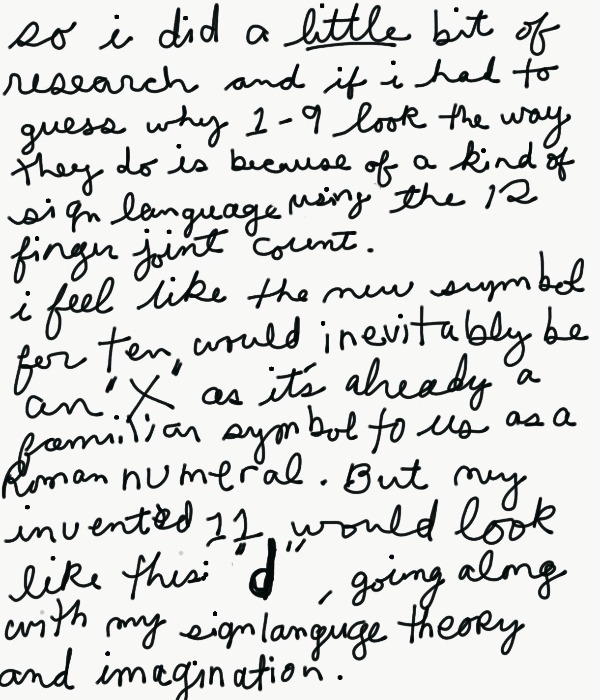 so i did a little bit of
research and if i had to
guess why 1-9 look the way
they do is because of a kind of
sign language using the 12
finger joint count.
i feel like the new symbol
for ten would inevitably be
an "X" as it's already a
familiar symbol to us as a
Roman numeral. But my
invented 11 would look
like this "d", going along
with my signlanguge theory
and imagination.